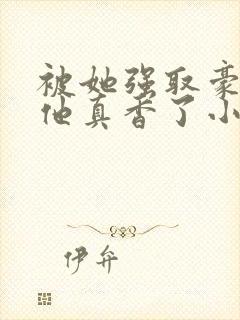 被她强取豪
他真香了小
伊弁